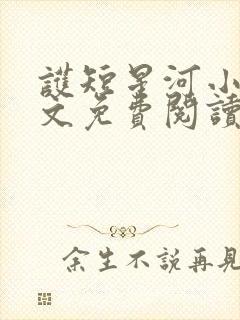 護短星河小
文免費閱讀
余生不說再見